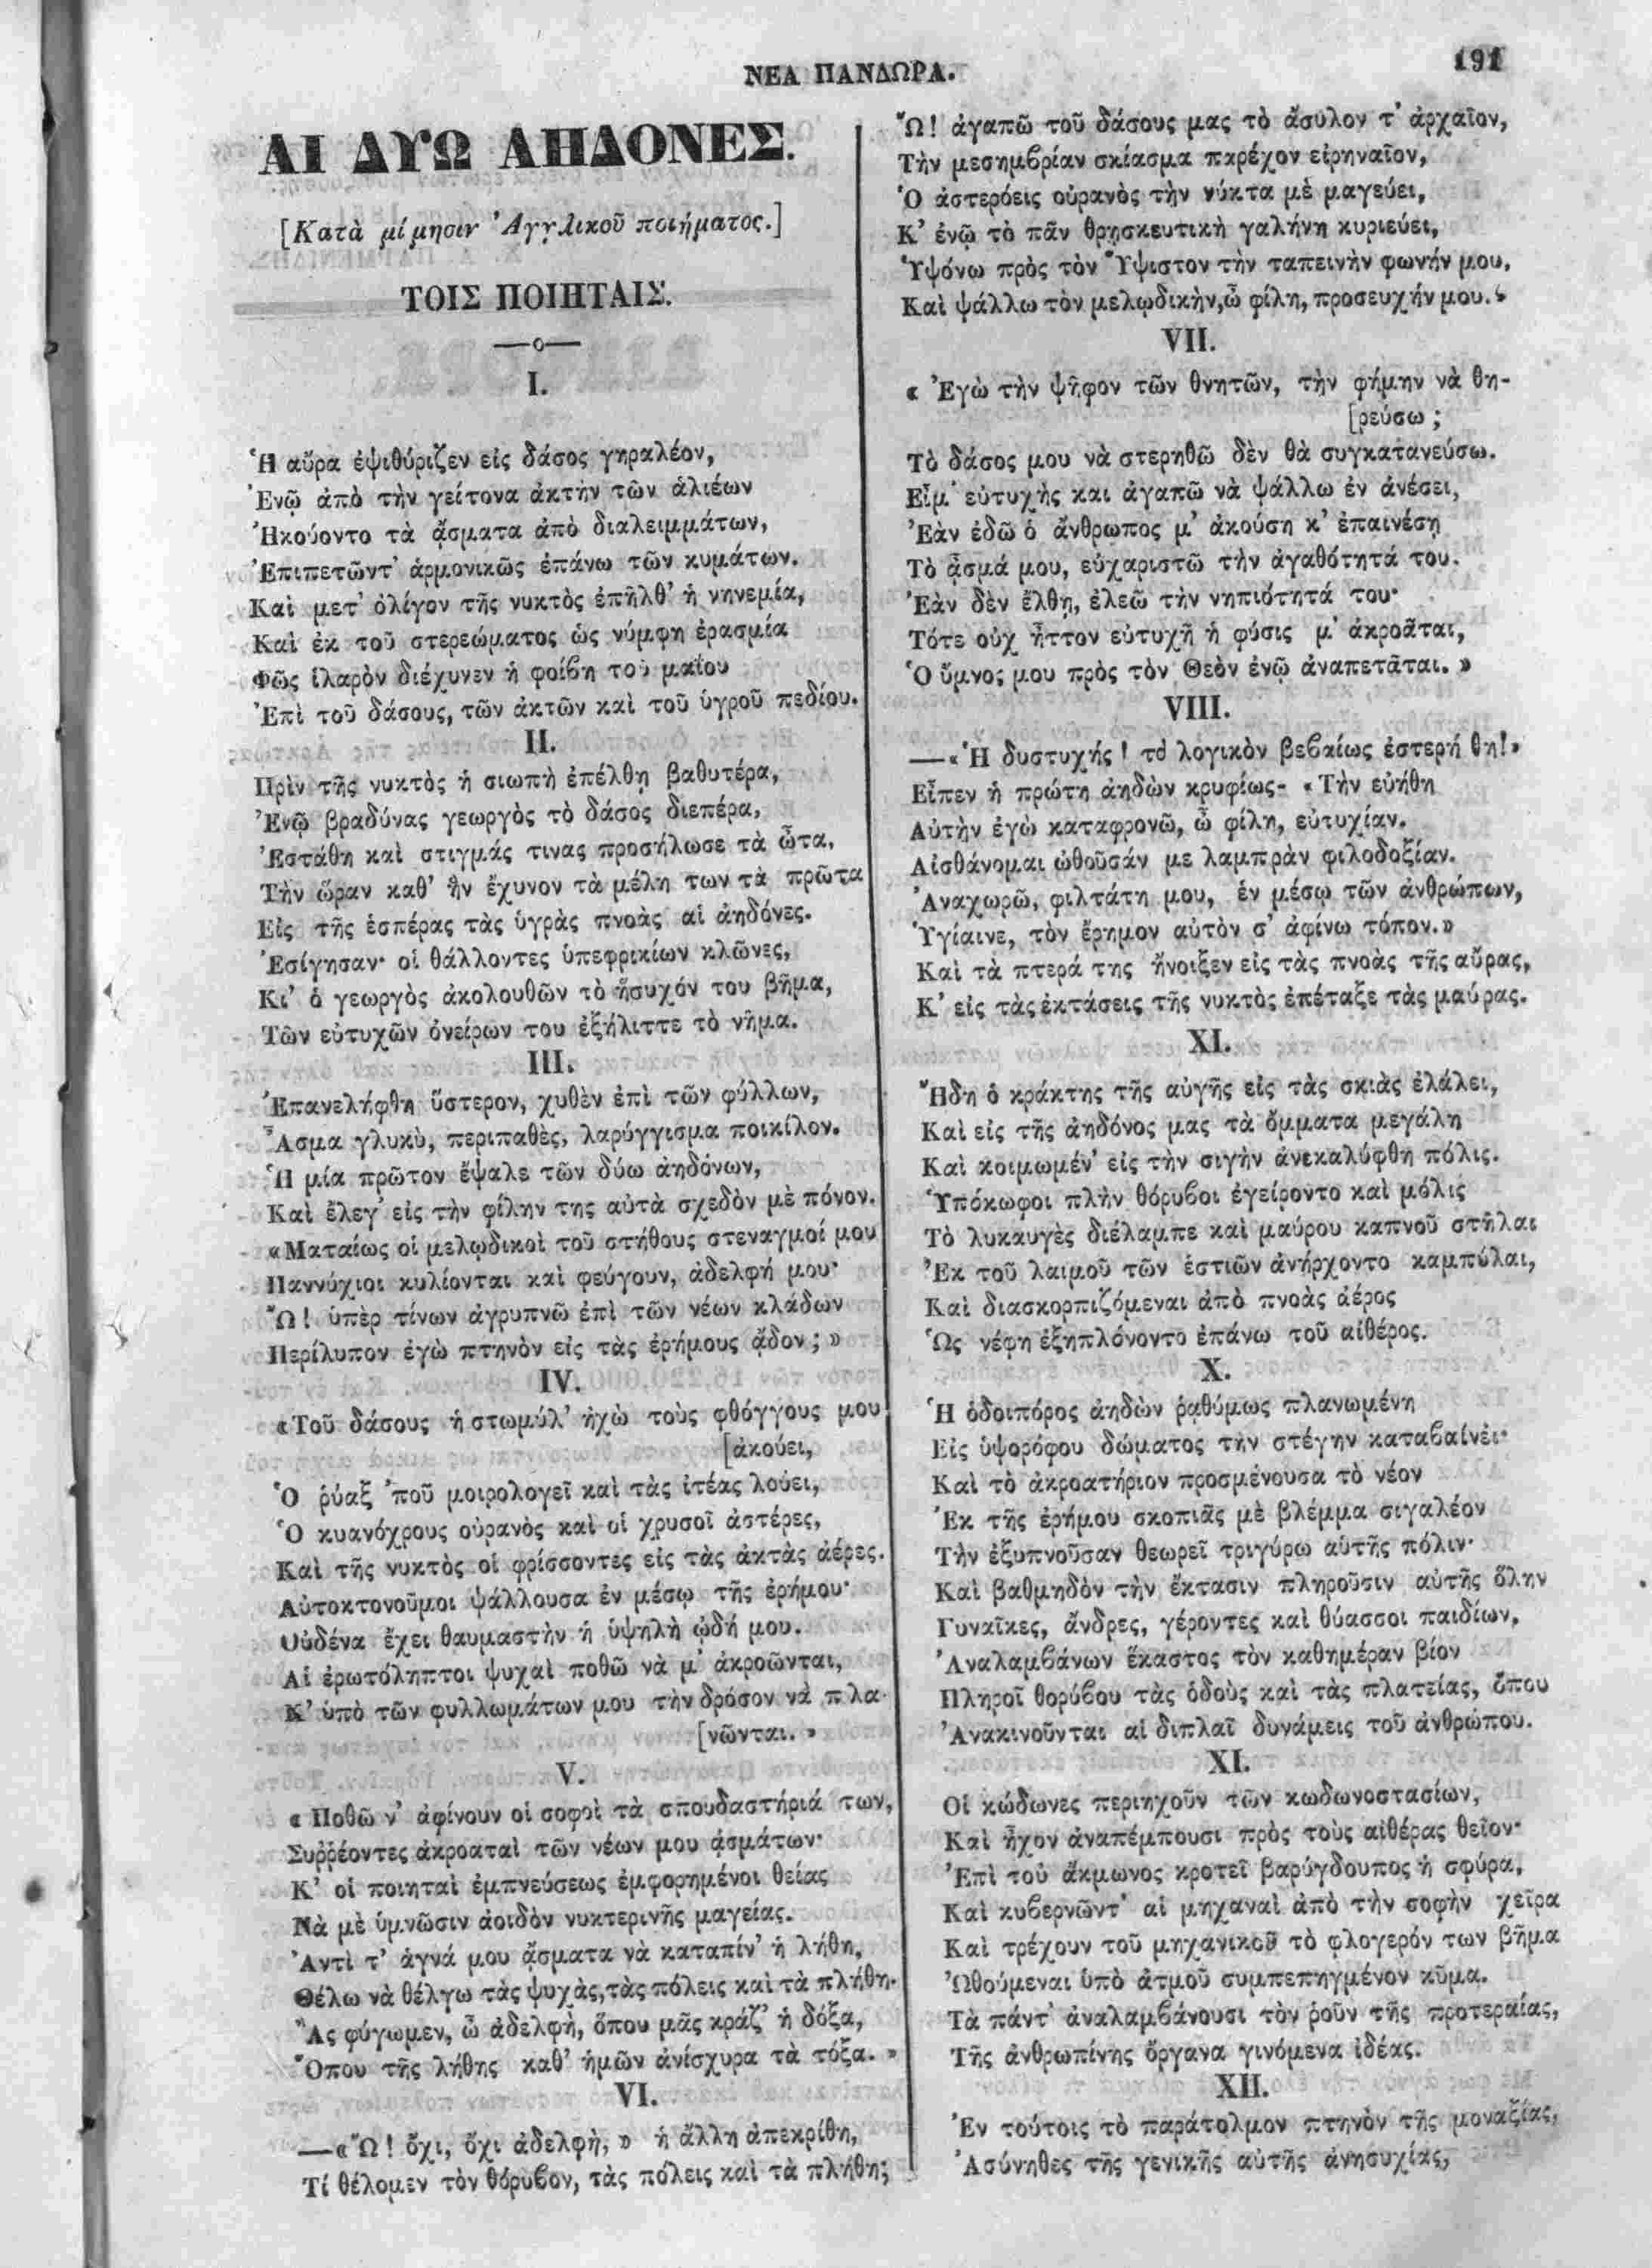 ΝΕΑ ΠΑΝΔΩΡΑ.
191
ΑΙ ΔΥΩ ΑΗΔΟΝΕΣ.
[Κατὰ μίμησιν Ἀγγλικοῦ ποιήματος.]
ΤΟΙΣ ΠΟΙΗΤΑΙΣ.
—ο—
I.
Ἡ αὔρα ἐψιθύριζεν εἰς δάσος γηραλέον,
Ἐνῷ ἀπὸ τὴν γείτονα ἀκτὴν τῶν ἁλιέων
Ἠκούοντο τὰ ᾄσματα ἀπὸ διαλειμμάτων,
Ἐπιπετῶντ' ἁρμονικῶς ἐπάνω τῶν κυμάτων.
Καὶ μετ' ὀλίγον τῆς νυκτὸς ἐπῆλθ' ἡ νηνεμία,
Καὶ ἐκ τοῦ στερεώματος ὡς νύμφη ἐρασμία
Φῶς ἱλαρὸν διέχυνεν ἡ φοίβη τοῦ μαΐου
Ἐπὶ τοῦ δάσους, τῶν ἀκτῶν καὶ τοῦ ὑγροῦ πεδίου.
II.
Πρὶν τῆς νυκτὸς ἡ σιωπὴ ἐπέλθῃ βαθυτέρα,
Ἐνῷ βραδύνας γεωργὸς τὸ δάσος διεπέρα,
Ἐστάθη καὶ στιγμάς τινας προσήλωσε τὰ ὦτα,
Τὴν ὥραν καθ' ἣν ἔχυνον τὰ μέλη των τὰ πρῶτα
Εἰς τῆς ἑσπέρας τὰς ὑγρὰς πνοὰς αἱ ἀηδόνες.
Ἐσίγησαν· οἱ θάλλοντες ὑπεφρικίων κλῶνες,
Κι' ὁ γεωργὸς ἀκολουθῶν τὸ ἥσυχόν του βῆμα,
Τῶν εὐτυχῶν ὀνείρων του ἐξήλιττε τὸ νῆμα.
III.
Ἐπανελήφθη ὕστερον, χυθὲν ἐπὶ τῶν φύλλων,
ᾎσμα γλυκὺ, περιπαθὲς, λαρύγγισμα ποικίλον.
Ἡ μία πρῶτον ἔψαλε τῶν δύω ἀηδόνων,
Καὶ ἔλεγ' εἰς τὴν φίλην της αὐτὰ σχεδὸν μὲ πόνον.
«Ματαίως οἱ μελῳδικοὶ τοῦ στήθους στεναγμοί μου
Παννύχιοι κυλίονται καὶ φεύγουν, ἀδελφή μου·
Ὢ! ὑπὲρ τίνων ἀγρυπνῶ ἐπὶ τῶν νέων κλάδων
Περίλυπον ἐγὼ πτηνὸν εἰς τὰς ἐρήμους ᾄδον; »
IV.
«Τοῦ δάσους ἡ στωμύλ' ἠχὼ τοὺς φθόγγους μου
[ἀκούει,
Ὁ ῥύαξ 'ποῦ μοιρολογεῖ καὶ τὰς ἰτέας λούει,
Ὁ κυανόχρους οὐρανὸς καὶ οἱ χρυσοῖ ἀστέρες,
Καὶ τῆς νυκτὸς οἱ φρίσσοντες εἰς τὰς ἀκτὰς ἀέρες.
Αὐτοκτονοῦμοι ψάλλουσα ἐν μέσῳ τῆς ἐρήμου·
Οὐδένα ἔχει θαυμαστὴν ἡ ὑψηλὴ ᾠδή μου.
Αἱ ἐρωτόληπτοι ψυχαὶ ποθῶ νὰ μ' ἀκροῶνται,
Κ' ὑπὸ τῶν φυλλωμάτων μου τὴν δρόσον νὰ πλα-
[νῶνται. »
V.
« Ποθῶ ν' ἀφίνουν οἱ σοφοὶ τὰ σπουδαστήριά των,
Συῤῥέοντες ἀκροαταὶ τῶν νέων μου ᾀσμάτων·
Κ' οἱ ποιηταὶ ἐμπνεύσεως ἐμφορημένοι θείας
Νὰ μὲ ὑμνῶσιν ἀοιδὸν νυκτερινῆς μαγείας.
Ἀντὶ τ' ἁγνά μου ᾄσματα νὰ καταπίν' ἡ λήθη,
Θέλω νὰ θέλγω τὰς ψυχὰς, τὰς πόλεις καὶ τὰ πλήθη.
Ἂς φύγωμεν, ὦ ἀδελφὴ, ὅπου μᾶς κράζ' ἡ δόξα,
Ὅπου τῆς λήθης καθ' ἡμῶν ἀνίσχυρα τὰ τόξα. »
VI.
—«Ὢ! ὄχι, ὄχι ἀδελφὴ, » ἡ ἄλλη ἀπεκρίθη,
Τί θέλομεν τὸν θόρυβον, τὰς πόλεις καὶ τὰ πλήθη;
Ὢ! ἀγαπῶ τοῦ δάσους μας τὸ ἄσυλον τ' ἀρχαῖον,
Τὴν μεσημβρίαν σκίασμα παρέχον εἰρηναῖον,
Ὁ ἀστερόεις οὐρανὸς τὴν νύκτα μὲ μαγεύει,
Κ' ἐνῷ τὸ πᾶν θρῃσκευτικὴ γαλήνη κυριεύει,
Ὑψόνω πρὸς τὸν Ὕψιστον τὴν ταπεινὴν φωνήν μου,
Καὶ ψάλλω τὸν μελῳδικὴν, ὦ φίλη, προσευχήν μου.»
VII.
« Ἐγὼ τὴν ψῆφον τῶν θνητῶν, τὴν φήμην νὰ θη-
[ρεύσω ;
Τὸ δάσος μου νὰ στερηθῶ δὲν θὰ συγκατανεύσω.
Εἶμ' εὐτυχὴς και ἀγαπῶ νὰ ψάλλω ἐν ἀνέσει,
Ἐὰν ἐδῶ ὁ ἄνθρωπος μ' ἀκούσῃ κ' ἐπαινέσῃ
Τὸ ᾆσμά μου, εὐχαριστῶ τὴν ἀγαθότητά του.
Ἐὰν δὲν ἔλθῃ, ἐλεῶ τὴν νηπιότητά του·
Τότε οὐχ ἧττον εὐτυχῆ ἡ φύσις μ' ἀκροᾶται,
Ὁ ὕμνος μου πρὸς τὸν Θεὸν ἐνῷ ἀναπετᾶται. »
VIII.
—«Ἡ δυστυχής! τὸ λογικὸν βεβαίως ἐστερήθη!»
Εἶπεν ἡ πρώτη ἀηδὼν κρυφίως- «Τὴν εὐήθη
Αὐτὴν ἐγὼ καταφρονῶ, ὦ φίλη, εὐτυχίαν.
Αἰσθάνομαι ὠθοῦσάν με λαμπρὰν φιλοδοξίαν.
Ἀναχωρῶ, φιλτάτη μου, ἐν μέσῳ τῶν ἀνθρώπων,
Ὑγίαινε, τὸν ἔρημον αὐτὸν σ' ἀφίνω τόπον.»
Καὶ τὰ πτερά της ἤνοιξεν εἰς τὰς πνοὰς τῆς αὔρας,
Κ' εἰς τὰς ἐκτάσεις τῆς νυκτὸς ἐπέταξε τὰς μαύρας.
XI.
Ἤδη ὁ κράκτης τῆς αὐγῆς εἰς τὰς σκιὰς ἐλάλει,
Καὶ εἰς τῆς ἀηδόνος μας τὰ ὄμματα μεγάλη
Καὶ κοιμωμέν' εἰς τὴν σιγὴν ἀνεκαλύφθη πόλις.
Ὑπόκωφοι πλὴν θόρυβοι ἐγείροντο καὶ μόλις
Τὸ λυκαυγὲς διέλαμπε καὶ μαύρου καπνοῦ στῆλαι
Ἐκ τοῦ λαιμοῦ τῶν ἑστιῶν ἀνήρχοντο καμπύλαι,
Καὶ διασκορπιζόμεναι ἀπὸ πνοὰς ἀέρος
Ὡς νέφη ἐξηπλόνοντο ἐπάνω τοῦ αἰθέρος.
X.
Ἡ ὁδοιπόρος ἀηδὼν ῥαθύμως πλανωμένη
Εἰς ὑψορόφου δώματος τὴν στέγην καταβαίνει·
Καὶ τὸ ἀκροατήριον προσμένουσα τὸ νέον
Ἐκ τῆς ἐρήμου σκοπιᾶς μὲ βλέμμα σιγαλέον
Τὴν ἐξυπνοῦσαν θεωρεῖ τριγύρω αὑτῆς πόλιν·
Καὶ βαθμηδὸν τὴν ἔκτασιν πληροῦσιν αὐτῆς ὅλην
Γυναῖκες, ἄνδρες, γέροντες καὶ θύασσοι παιδίων,
Ἀναλαμβάνων ἕκαστος τὸν καθημέραν βίον
Πληροῖ θορύβου τὰς ὁδοὺς καὶ τὰς πλατείας, ὅπου
Ἀνακινοῦνται αἱ διπλαῖ δυνάμεις τοῦ ἀνθρώπου.
XI.
Οἱ κώδωνες περιηχοῦν τῶν κωδωνοστασίων,
Καὶ ἦχον ἀναπέμπουσι πρὸς τοὺς αἰθέρας θεῖον·
Ἐπὶ τοῦ ἄκμωνος κροτεῖ βαρύγδουπος ἡ σφύρα,
Καὶ κυβερνῶντ' αἱ μηχαναὶ ἀπὸ τὴν σοφὴν χεῖρα
Καὶ τρέχουν τοῦ μηχανικοῦ τὸ φλογερόν των βῆμα
Ὠθούμεναι ὑπὸ ἀτμοῦ συμπεπηγμένον κῦμα.
Τὰ πάντ' ἀναλαμβάνουσι τὸν ῥοῦν τῆς προτεραίας,
Τῆς ἀνθρωπίνης ὄργανα γινόμενα ἰδέας.
XII.
Ἐν τούτοις τὸ παράτολμον πτηνὸν τῆς μοναξίας,
Ἀσύνηθες τῆς γενικῆς αὐτῆς ἀνησυχίας,